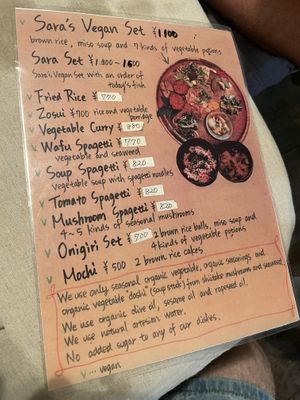 ✓ Sara's Vegan Set ¥1,100
brown rice, miso soup and 7 kinds of vegetable potions
Sara Set ¥1,200 ~ 1600
Sara's Vegan Set with an order of
today's fish
✓ Fried Rice ¥770
✓ Zosui ¥700 rice and vegetable
porridge
✓ Vegetable Curry ¥880
✓ Wafu Spagetti ¥770
vegetable and seaweed
✓ Soup Spagetti ¥820
vegetable soup with spagetti noodles
✓ Tomato Spagetti ¥820
✓ Mushroom Spagetti ¥820
4~5 kinds of seasonal mushrooms
✓ Onigiri Set ¥700 2 brown rice balls, miso soup and
4 kinds of vegetable potions
✓ Mochi ¥500 2 brown rice cakes
We use only seasonal organic vegetable, organic seasonings and
organic vegetable "dashi" (soup stock) from shiitake mushroom and seaweed
We use organic olive oil, sesame oil and rapeseed oil.
We use natural artesian water.
No added sugar to any of our dishes.
✓ ... vegan